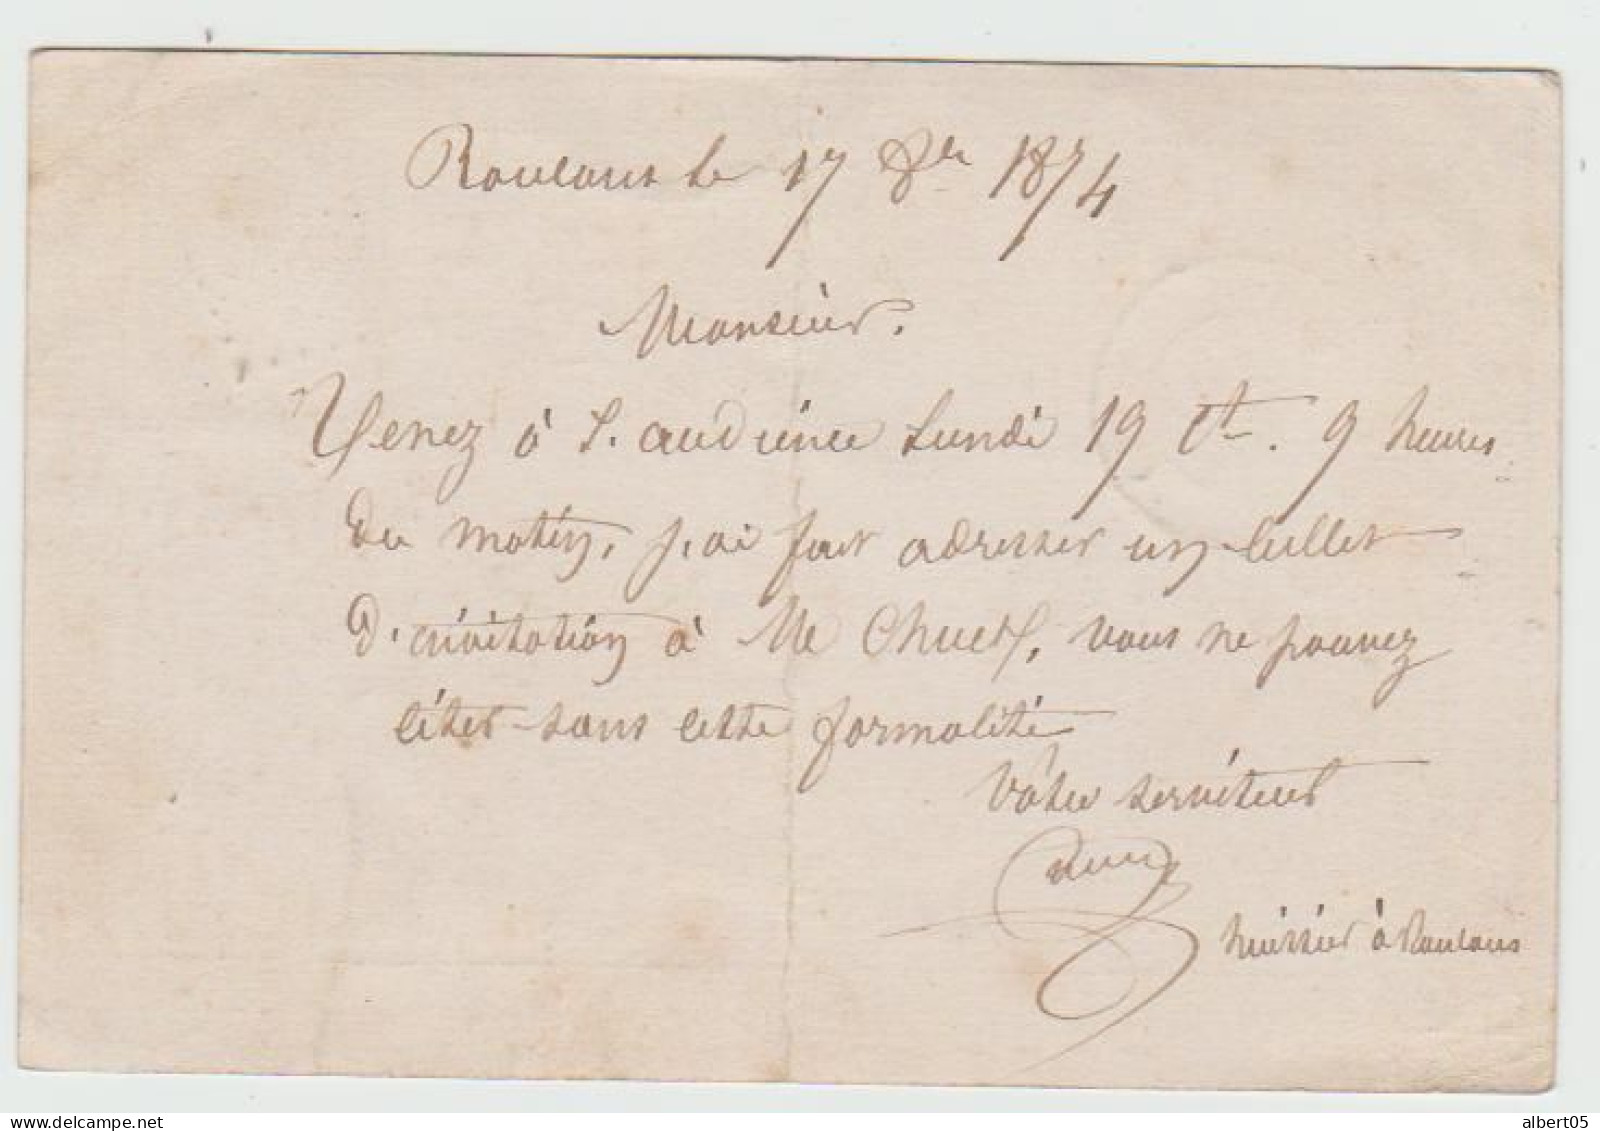 Roulans le 17 8bre 1874
Monsieur.
Venez à l'audience Lundi 19 Ct. 9 heures
du matin, j'ai fait adresser un billet
d'invitation à Me Chuet, vous ne pouvez
citer sans cette formalité
Votre serviteur
huissier à Roulans
albert05